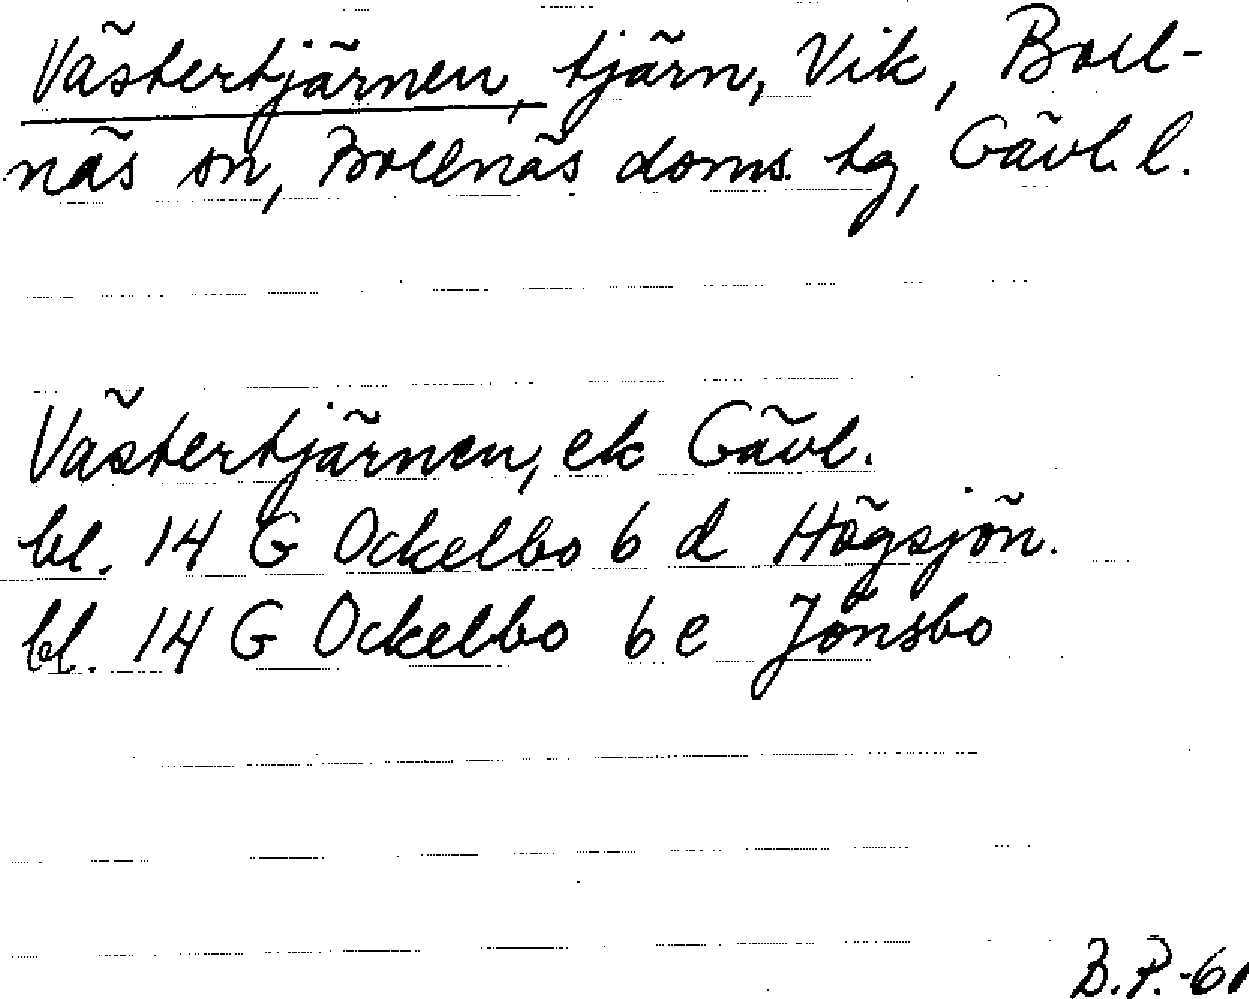 Västertjärnen, tjärn, Vik, Boll-
näs sn, Bollnäs doms. tg, Gävl. l.
Västertjärnen, ek Gävl.
bl. 14 G Ockelbo 6 d Högsjön.
bl. 14 G Ockelbo 6 e Jönsbo
B.P.-61